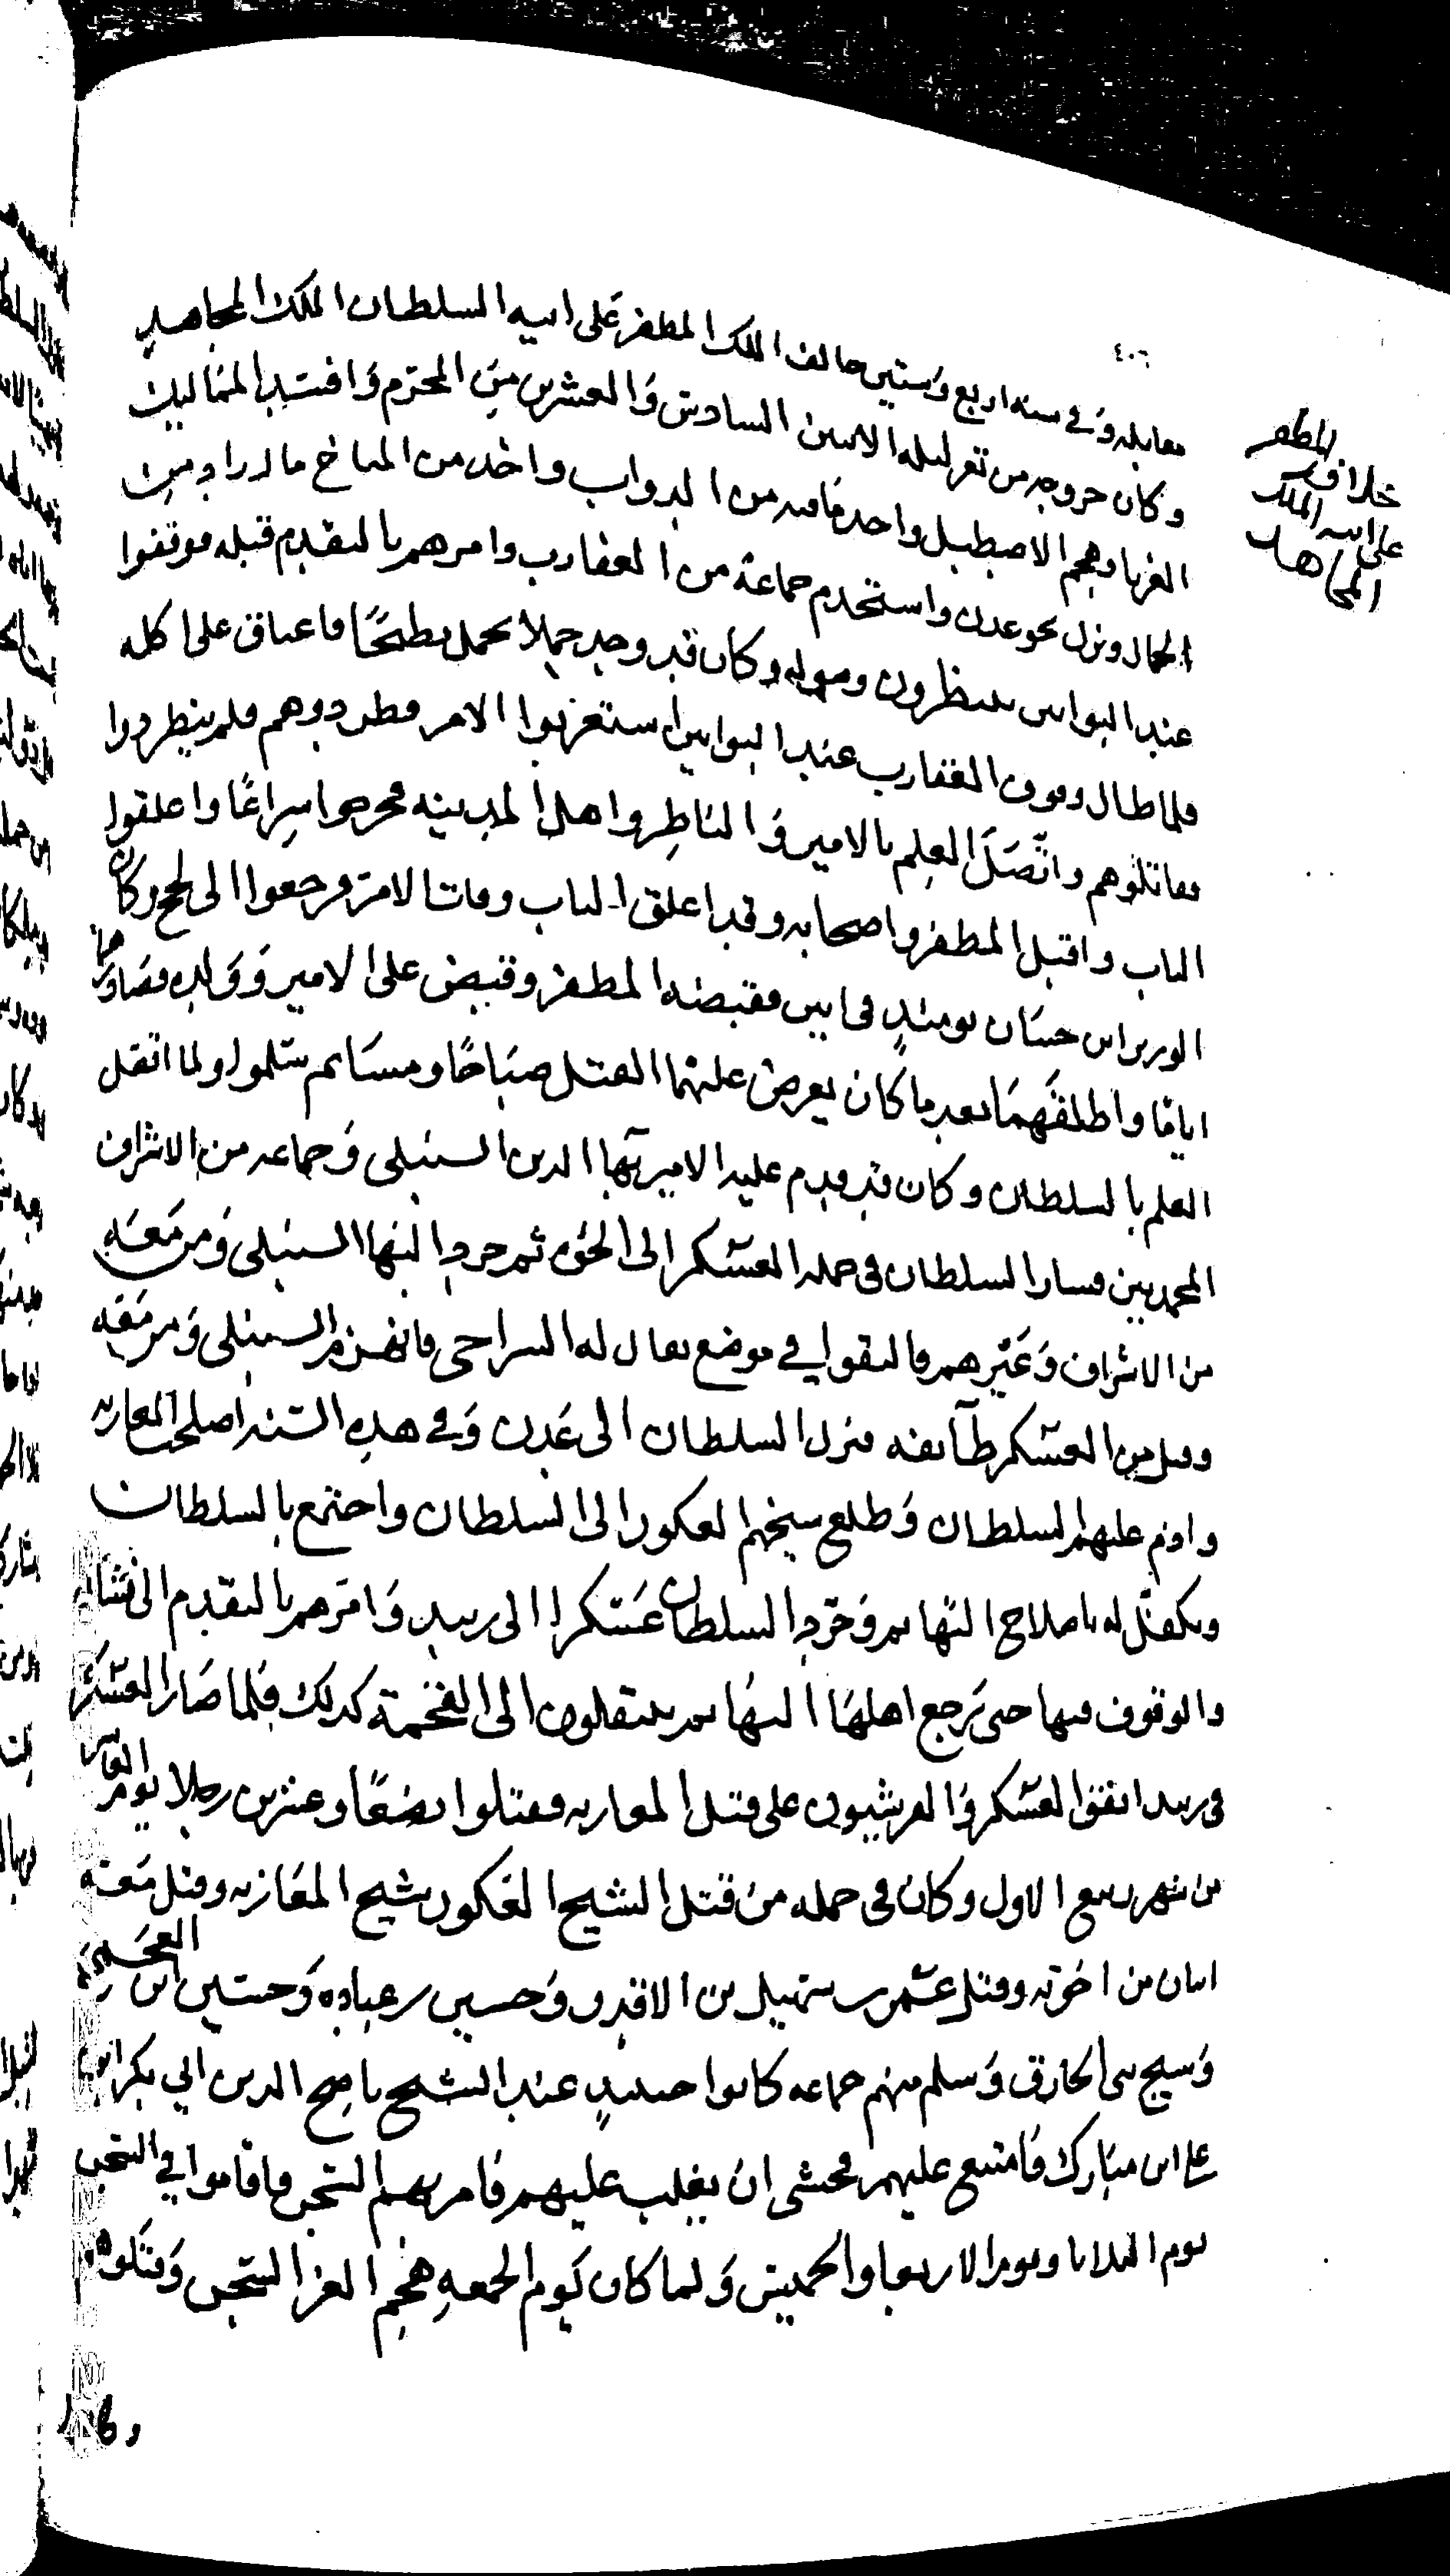 ٤٠٦
مقابله وفي سنه اربع وستين خالف الملك المظفر على ابيه السلطان الملك المجاهد
وكان خروجه من تعز ليله الاثنين السادس والعشرين من المحرم وافسد المماليك
الغربا وهجم الاصطبل واخد ما فيه من الدواب واخد من المناخ ما اراد من
الجمال ونزل نحو عدن واستخدم جماعة من العقارب وامرهم بالتقدم قبله فوقفوا
عند البوابين ينتظرون وصوله وكان قد وجد جملا يحمل بطيخًا فاعتاق على اكله
فلما طال وقوف العقارب عند البوابين استغربوا الامر فطردوهم فلم ينطردوا
فقاتلوهم واتّصل العلم بالامير والناظر واهل المدينه فخرجوا سراعًا واغلقوا
الباب واقبل المظفر واصحابه وقد اغلق الباب وفات الامر فرجعوا الى لحج وكان
الوزير ابن حسان يومئذٍ في ابين فقبضه المظفر وقبض على الامير وولده فصادرهما
اياما واطلقهما بعد ما كان يعرض عليهما القتل صباحًا ومساءً ثم سلموا ولما اتصل
العلم بالسلطان وكان قد قدم عليه الامير بها الدين السنبلي وجماعه من الاشراف
المحمديين فسار السلطان في جمله العسكر الى الجوه ثم جرد البها السنبلي ومن معه
من الاشراف وغيرهم فالتقوا في موضع يقال له السراحى فانهزم السنبلي ومن معه
وقتل من العسكر طآئفه فنزل السلطان الى عدن وفي هذه السنه اصلحت المعازبه
واذم عليهم السلطان وطلع شيخهم العكور الى السلطان واجتمع بالسلطان
وتكفل له باصلاح التهايم وجرد السلطان عسكرا الى زبيد وامرهم بالتقدم الى فشال
والوقوف فيها حتى يرجع اهلها اليها ثم ينتقلون الى الفخمة كذلك فلما صار العسكر
في زبيد اتفق العسكر والقرشيون على قتل المعازبه فقتلوا بضعًا وعشرين رجلا يوم العاشر
من شهر ربيع الاول وكان في جمله من قتل الشيح العكور شيح المعازبه وقتل معه
اثنان من اخوته وقتل عمر بن سهيل بن الاقدر وحسين بن عباده وحسين ابن
وسيح بن الخارق وسلم منهم جماعه كانوا حينئذٍ عند الشيح ناصح الدين ابي بكر ابن
علي ابن مبارك فامتنع عليهم فخشى ان يغلب عليهم فامر بهم السجن فاقاموا في السجن
يوم الثلاثا ويوم الاربعا والخميس ولما كان يوم الجمعه هجم الغز السجن وقتلوهم
وكان
المظفر
خلاف الملك
على ابيه
المجاهد